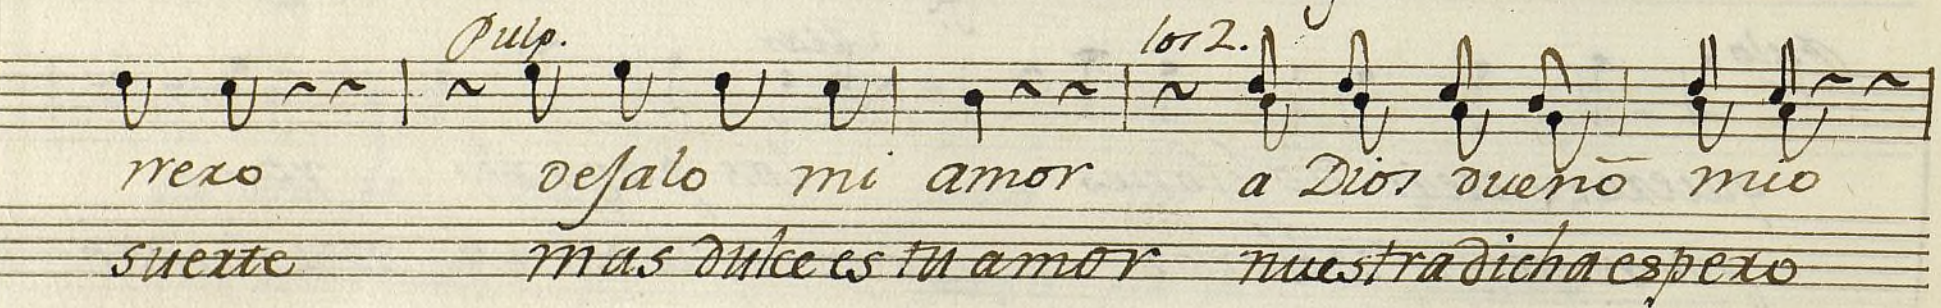 Pulp. los 2.
rrero desalo mi amor a Dios dueño mio
suerte mas dulce es tu amor nuestra dicha espero